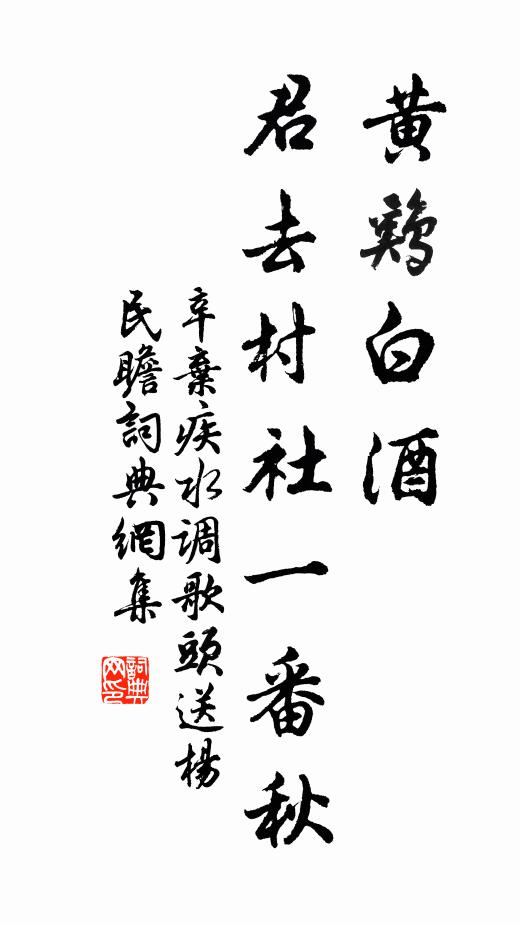 黄鷄白酒
君去村社一番秋
辛棄疾水调歌頭送楊
民瞻詞典網集
詞典
网印